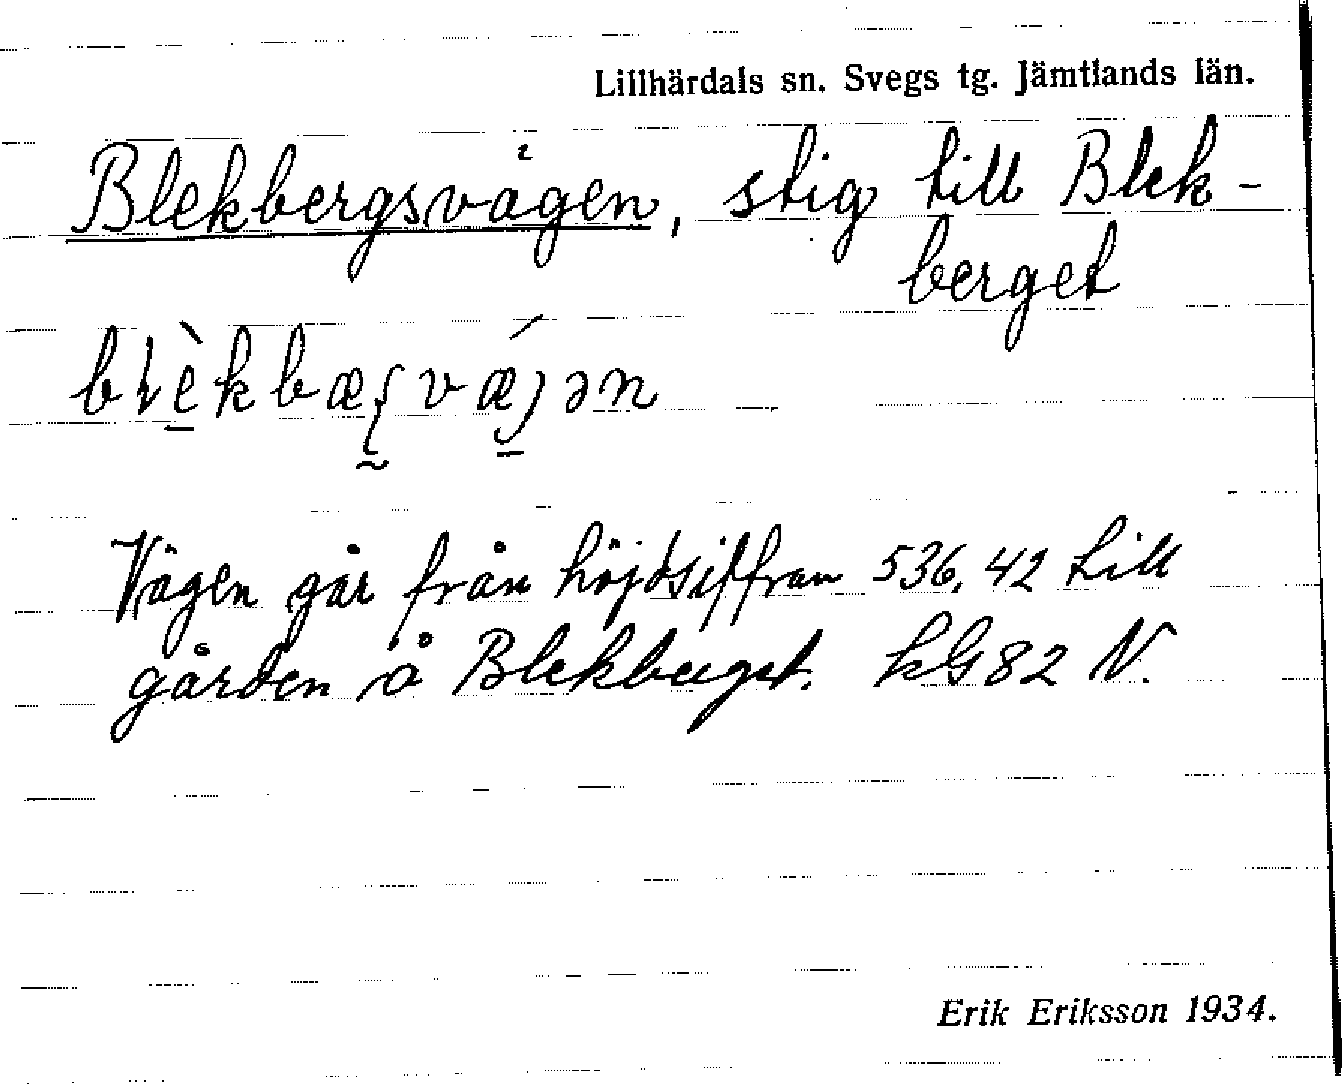 Lillhärdals sn. Svegs tg. Jämtlands län.
Blekbergsvägen, stig till Blek-
berget
Vägen går från höjdsiffran 536,42 till
gården å Blekberget. kG82 N.
Erik Eriksson 1934.